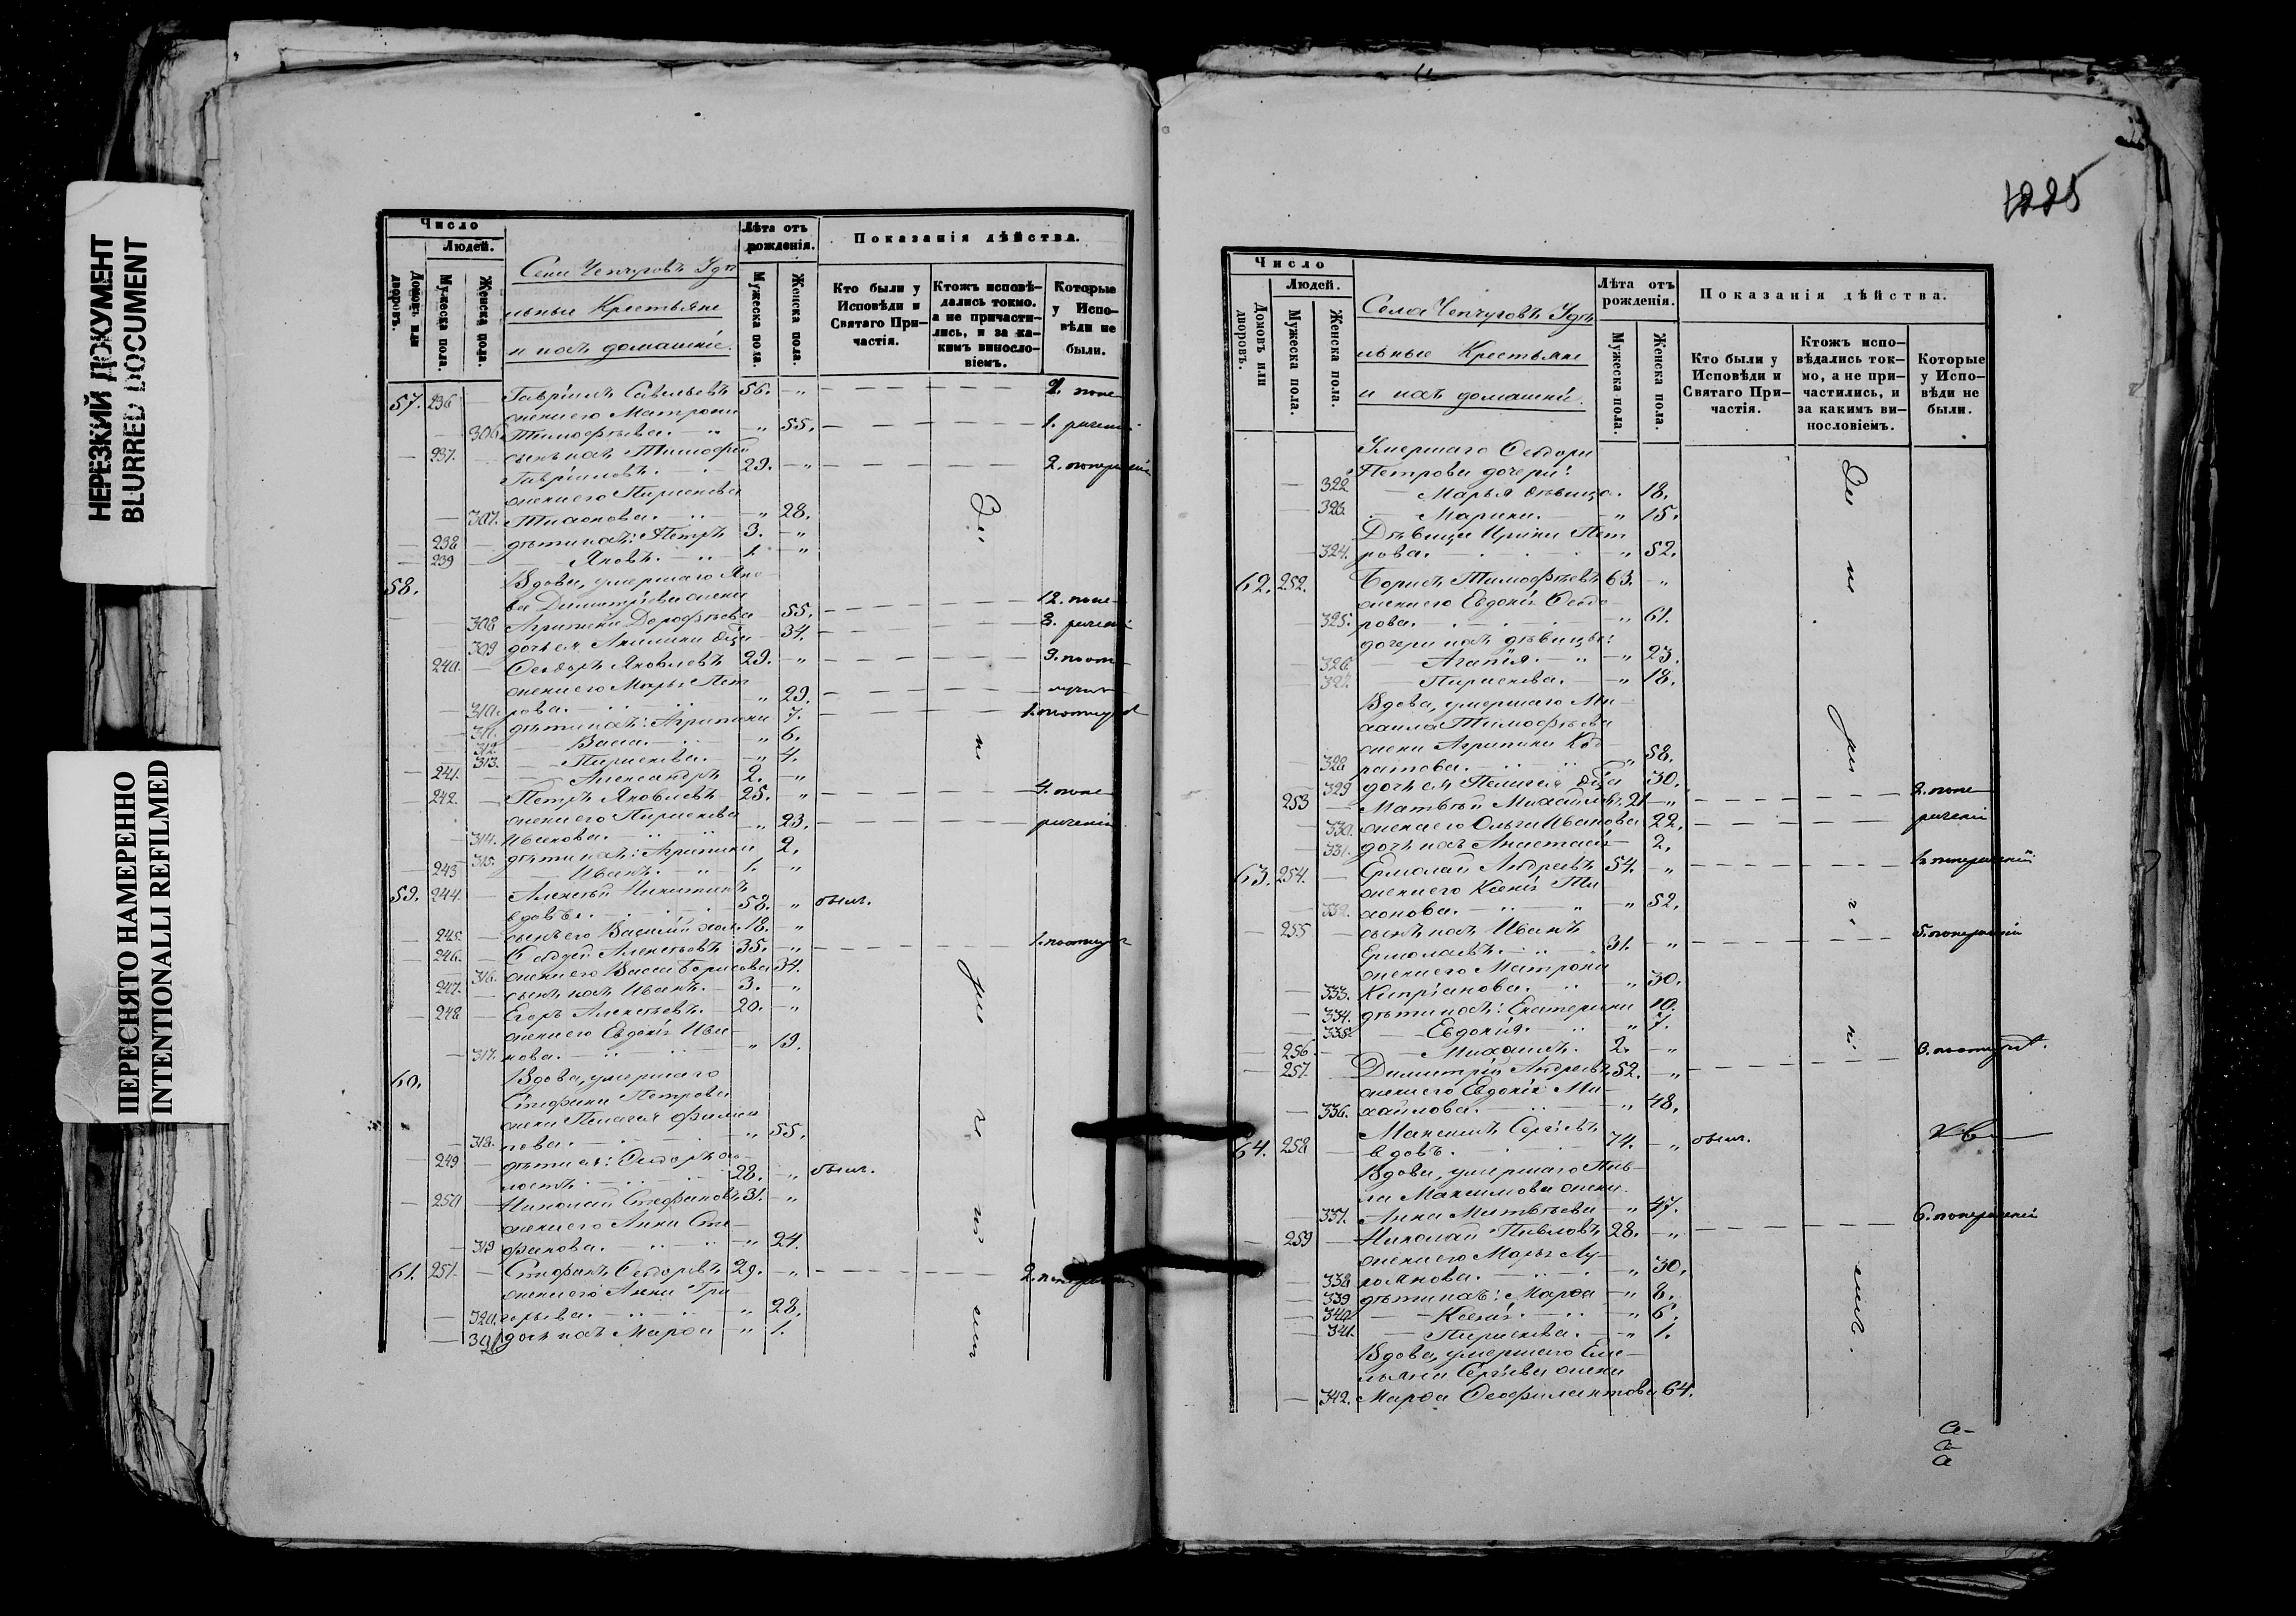 НЕРЕЗКИЙ ДОКУМЕНТ
BLURRED DOCUMENT
ПЕРЕСНЯТО НАМЕРЕННО
INTENTIONALLI REFILMED
Число
Людей.
Домовъ или дворовъ.
Мужеска пола.
Женска пола.
Села Чепчуговъ Удѣ
льные Крестьяне
и ихъ домашніе.
Лѣта отъ рожденія.
Мужеска пола.
Женска пола.
Показанія дѣйства.
Кто были у Исповѣди и Святаго При-частія.
Ктожъ исповѣ-дались токмо. а не причасти-лись, и за ка-кимъ винослo-віемъ.
Которые у Испо-вѣди не были.
57. 236 — Гавріилъ Савельевъ 56. — „
жена его Матрона
306. Тимофѣева. — „ „ 55.
— 237. — сынъ ихъ Тимофей
Гавріиловъ. 29. — „
жена его Параскева
— 307. Тихонова. „ 28.
— 238 — дѣти ихъ: Петръ 3. — „
— 239 — Яковъ. 1. „
58. Вдова, умершаго Яко
ва Димитріева жена
308 Агрипина Дорофѣева 55.
309 дочь ея Акилина дѣв. 34.
240. — Ѳеодоръ Яковлевъ 29. — „
жена его Марья Пет
— 310. рова. „ 29.
311. дѣти ихъ: Агрипина 7.
312. Васса. „ 6.
313. — Параскева. — „ 4.
— 241. — Александръ 2. — „
— 242. — Петръ Яковлевъ 25. „
жена его Параскева
— 314. Иванова. „ 23.
315. дѣти ихъ: Агрипина 2.
— 243 — Иванъ. — „ 1. „
59. 244. — Алексѣй Никитинъ
вдовъ. 58. „ былъ.
— 245. — сынъ его Василій хол. 18. „
— 246. — Ѳеодоръ Алексѣевъ 35. — „
— 316. жена его Васса Борисова 34.
247. — сынъ ихъ Иванъ. — 3. — „
— 248 — Егоръ Алексѣевъ. — 20. — „
жена его Евдокія Ива
— 317. нова. — „ 19.
60. Вдова, умершаго
Стефана Петрова
жена Пелагея Филип
— 318. пова. — „ 55.
— 249 — дѣти ея: Ѳеодоръ хо-
лостъ. 28. — „ былъ.
— 250 — Николай Стефановъ 31. — „
жена его Анна Сте
— 319 фанова. — „ 24.
61. 251. — Стефанъ Ѳеодоровъ 29. — „
жена его Анна Гри
— 320. горьева. „ 28.
— 321 дочь ихъ Марѳа — „ 1.
1225
Число
Людей.
Домовъ или дворовъ.
Мужеска пола.
Женска пола.
Села Чепчуговъ Удѣ
льные Крестьяне
и ихъ домашніе.
Лѣта отъ рожденія.
Мужеска пола.
Женска пола.
Показанія дѣйства.
Кто были у Исповѣди и Святаго При-частія.
Ктожъ испо-вѣдались ток-мо, а не при-частились, и за какимъ ви-нословіемъ.
Которые у Испо-вѣди не были.
Умершаго Ѳеодора
Петрова дочери:
— 322 — Марья дѣвица. 18.
— 323. — Марина. — „ 15.
Дѣвица Ирина Пет
— 324. рова. „ 52.
62. 252. Борисъ Тимофѣевъ 63. — „
жена его Евдокія Ѳеодо
— 325. рова. „ 61.
дочери ихъ дѣвицы:
— 326. — Агапія. — „ — „ 23.
327. — Параскева. — „ 18.
Вдова, умершаго Ми
хаила Тимофѣева
жена Агрипина Код
— 328 ратова. „ 58.
329 дочь ея Пелагея дѣв. 30.
253 — Матвѣй Михайловъ 21 — „
— 330. жена его Ольга Иванова 22.
331. дочь ихъ Анастасія 2.
63. 254. — Ермолай Андреевъ 54. — „
жена его Ксенія Ти
— 332. хонова. — „ 52.
— 255 — сынъ ихъ Иванъ
Ермолаевъ. — 31. — „
жена его Матрона
— 333. Кипріанова. „ 30.
— 334. дѣти ихъ: Екатерина 10.
— 335. — Евдокія. „ 7.
— 256 — Михаилъ. 2. — „
— 257. Димитрій Андреевъ 52. — „
жена его Евдокія Ми
— 336. хайлова. — „ 48.
64. 258 — Максимъ Сергѣевъ
вдовъ. 74. — „ былъ.
Вдова, умершаго Пав
ла Максимова жена
— 337. Анна Матвѣева — „ 47.
— 259 — Николай Павловъ 28. — „
жена его Марья Лу
— 338 кьянова. — „ 30.
— 339 дѣти ихъ: Марѳа — „ 8.
— 340 — Ксенія. — „ 6.
— 341. — Параскева. — „ 1.
Вдова, умершаго Еме
льяна Сергѣева жена
— 342. Марѳа Ѳеофилактова 64.